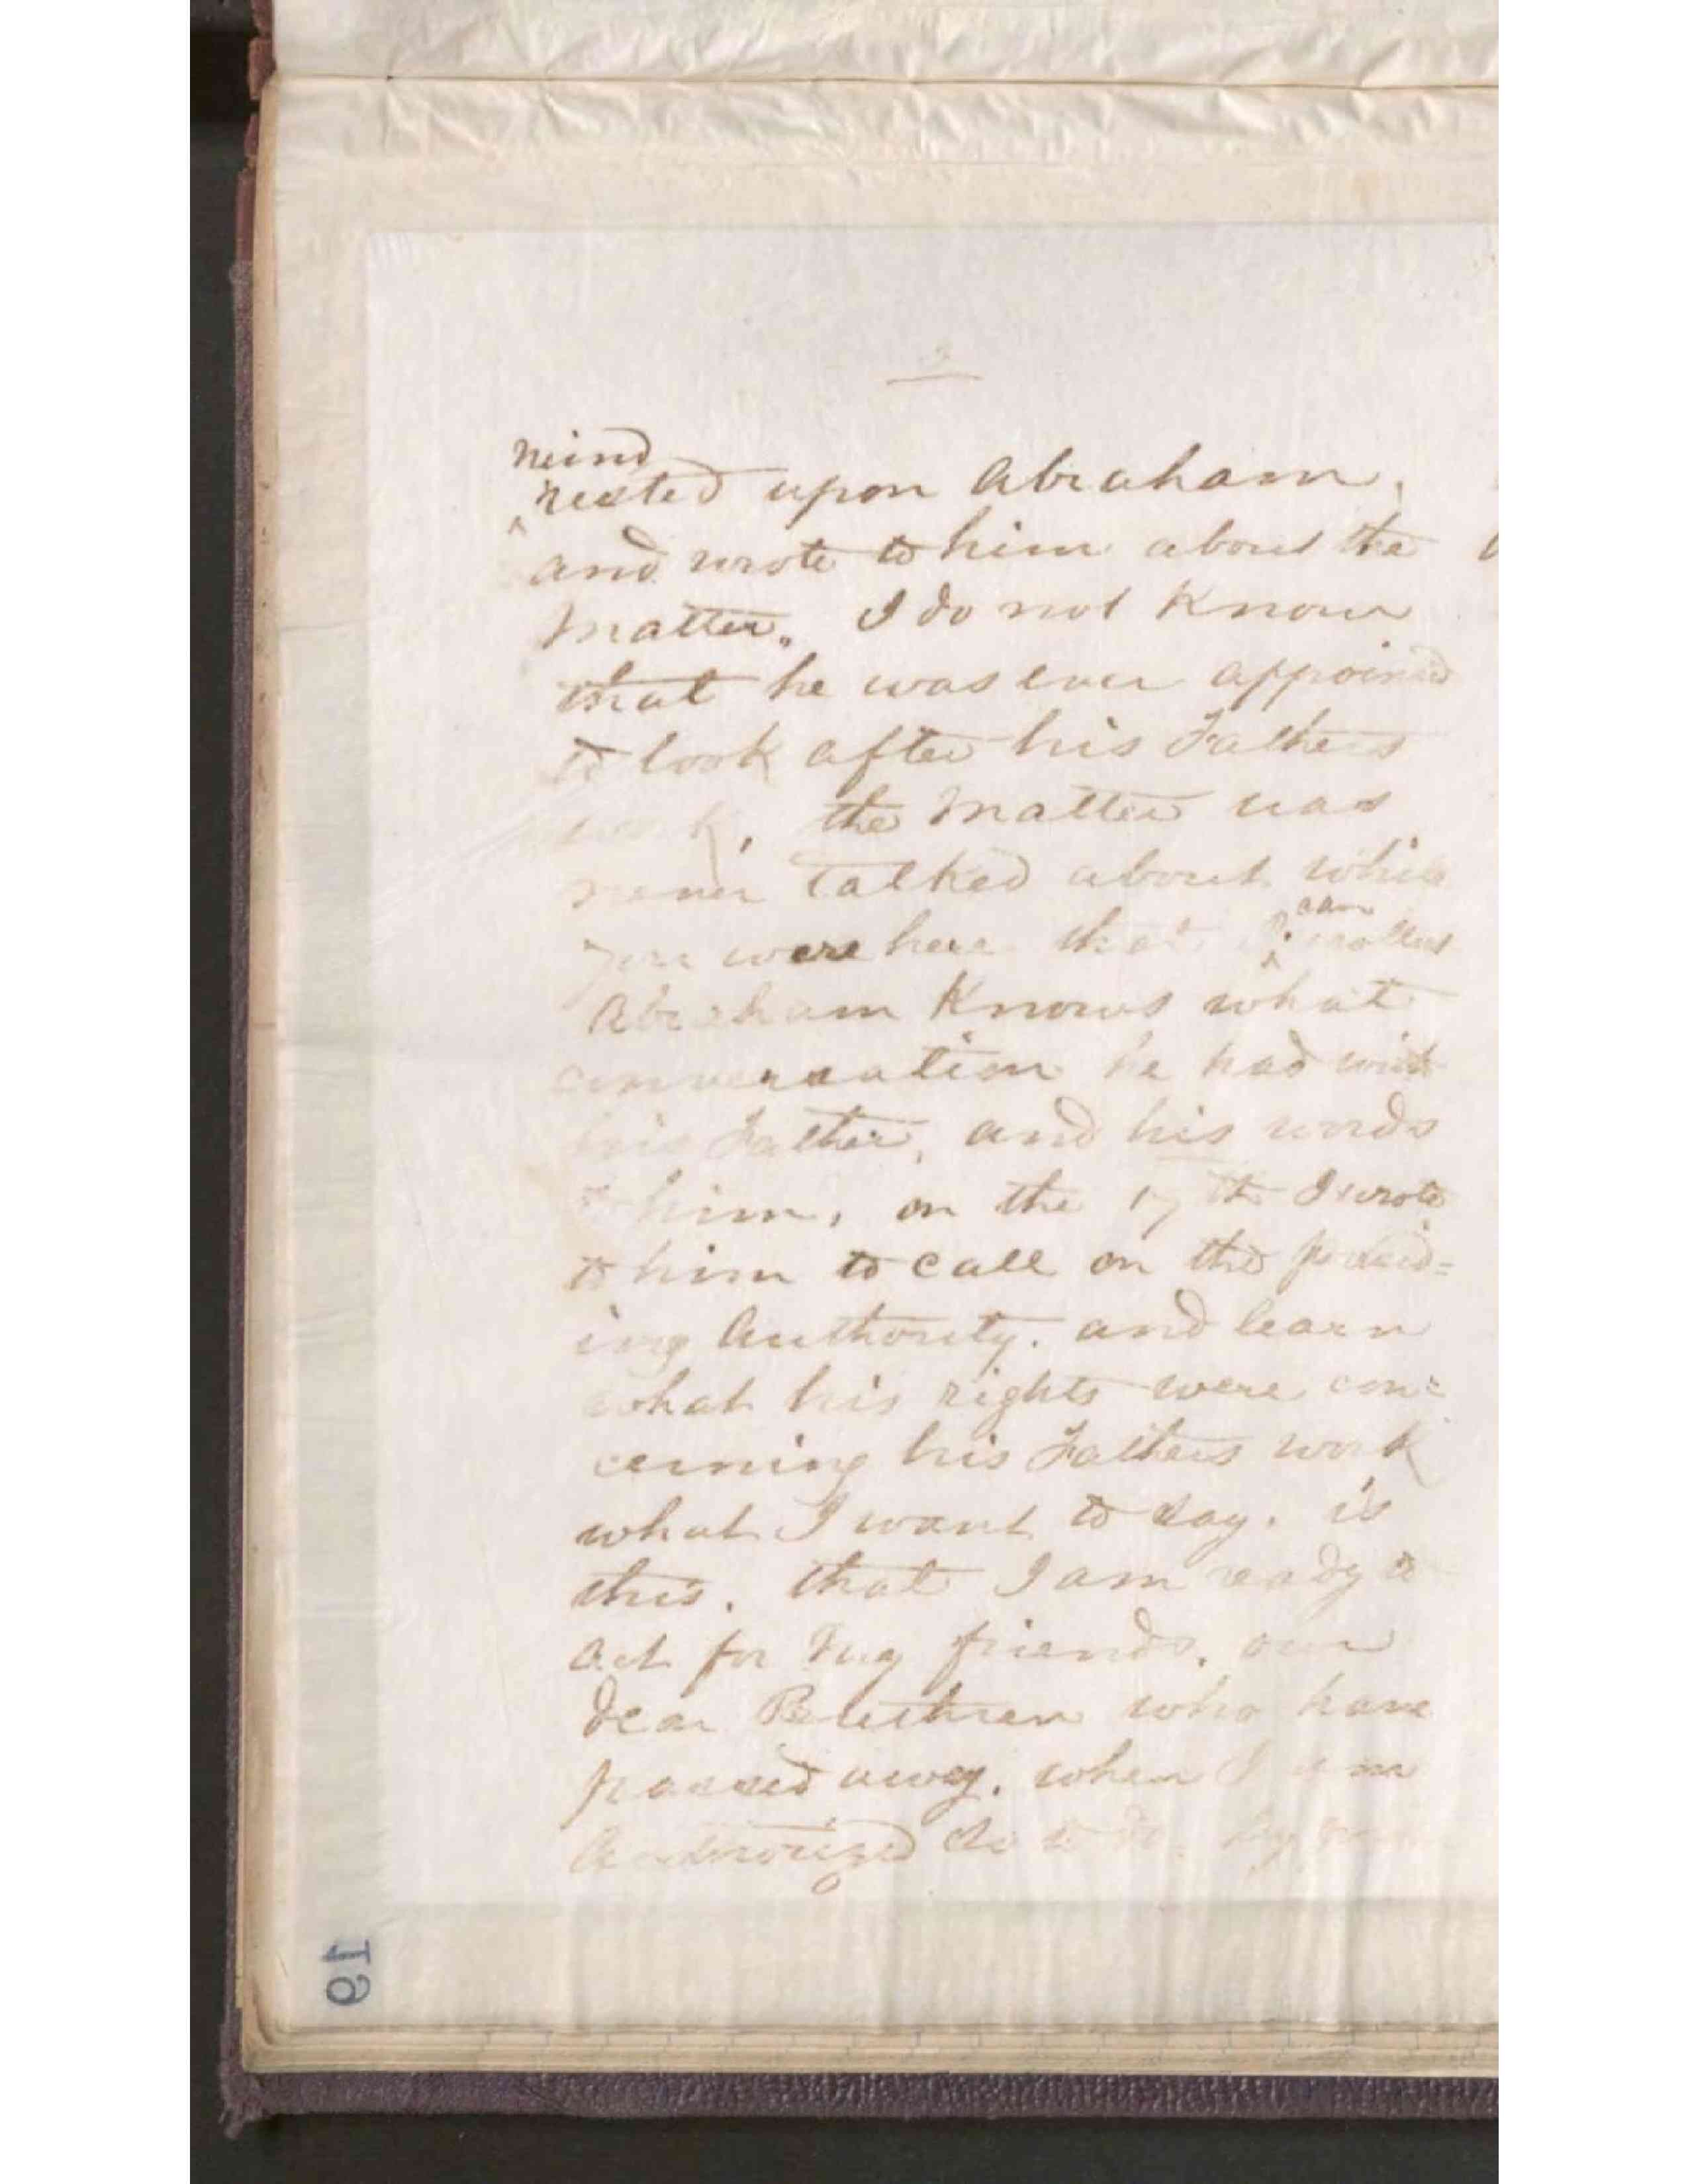 2
mind
^rested upon Abraham,
and wrote to him about the
matter. I do not Know
that he was ever appointed
to look after his Fathers
work, the matter was
never talked about while
can
you were here that I ^ recollect
Abraham Knows what
conversation he had with
his Father, and his words
to him, on the 17th I wrote
to him to call on the presid=
ing Authority. and learn
what his rights were con=
cerning his Fathers work
what I want to say. is
this. that I am ready to
act for my friends. our
dear Brethren who have
passed away. when I am
Authorized so to do. by
19